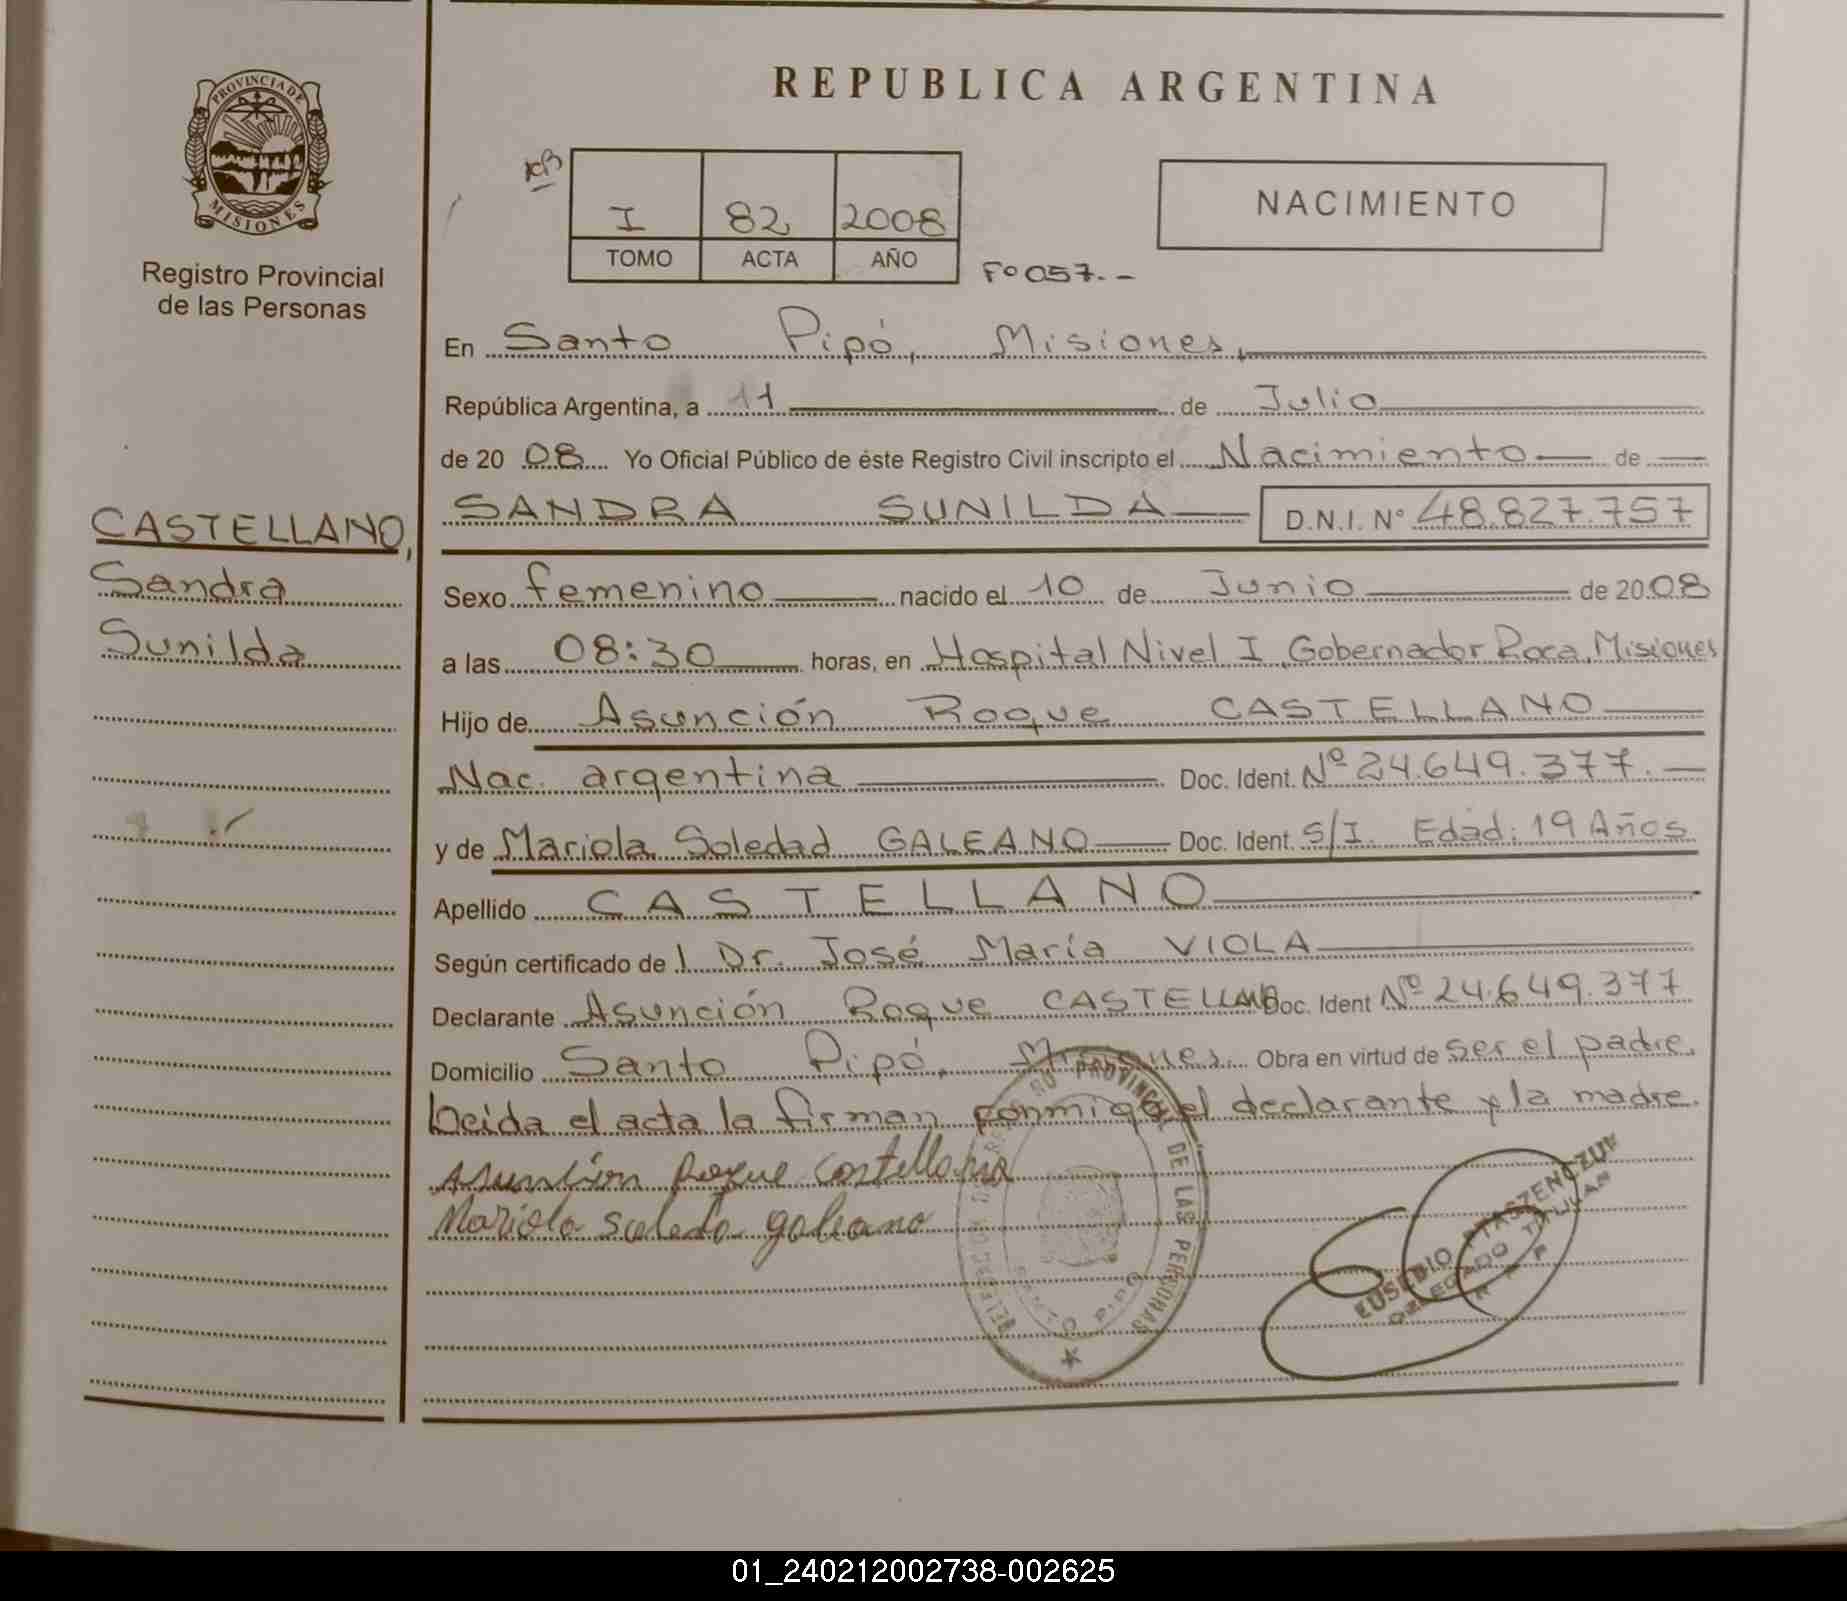 REPUBLICA ARGENTINA
PROVINCIA DE MISIONES
Registro Provincial
de las Personas
I 82 2008
TOMO ACTA AÑO
Fº 057.-
NACIMIENTO
En Santo Pipó, Misiones,
República Argentina, a 11 de Julio
de 20 08 Yo Oficial Público de éste Registro Civil inscripto el Nacimiento de
SANDRA SUNILDA D.N.I. Nº 48.827.757
CASTELLANO,
Sandra
Sunilda
Sexo femenino nacido el 10 de Junio de 20 08
a las 08:30 horas, en Hospital Nivel I, Gobernador Roca, Misiones
Hijo de Asunción Roque CASTELLANO
Nac. argentina Doc. Ident. Nº 24.649.377.
y de Mariola Soledad GALEANO Doc. Ident. S/I. Edad: 19 Años
Apellido CASTELLANO
Según certificado de l Dr. José María VIOLA
Declarante Asunción Roque CASTELLANO Doc. Ident Nº 24.649.377
Domicilio Santo Pipó, Misiones. Obra en virtud de ser el padre.
Leida el acta la firman conmigo el declarante y la madre.
Asuncion Roque Castellano
Mariola soleda galeano
PROVINCIAL DE LAS PERSONAS
SANTO PIPO
EUSEBIO PTASZENCZUK
DELEGADO TITULAR
01_240212002738-002625